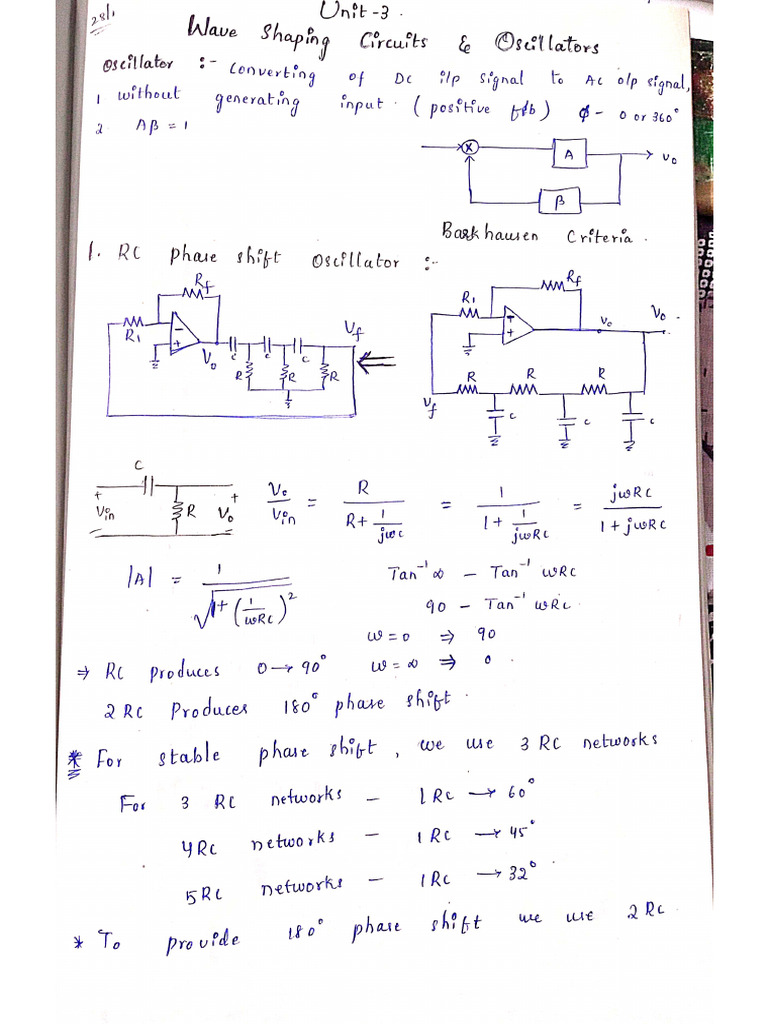 28/1
Unit-3.
Wave Shaping Circuits & Oscillators
Oscillator :- Converting of Dc i/p signal to Ac o/p signal,
1 without generating input. (positive f/b) φ - 0 or 360°
2. Aβ = 1
X A V₀
β
Barkhausen Criteria.
1. RC phase shift Oscillator :-
Rf
R₁ - + V₀ C C C Vf
R R R
Rf
R₁ - + V₀ V₀
R R R
Vf C C C
C
+ Vin R + V₀
V₀/Vin = R/(R + 1/jωc) = 1/(1 + 1/jωRc) = jωRC/(1 + jωRC)
|A| = 1/√(1 + (1/ωRC)²)
Tan⁻¹∞ - Tan⁻¹ ωRC
90 - Tan⁻¹ ωRC
ω = 0 ⇒ 90
⇒ RC produces 0→90° ω = ∞ ⇒ 0.
2 RC Produces 180° phase shift.
* For stable phase shift, we use 3 RC networks
For 3 RC networks - 1 RC → 60°
4 RC networks - 1 RC → 45°
5 RC networks - 1 RC → 32°
* To provide 180° phase shift we use 2 RC